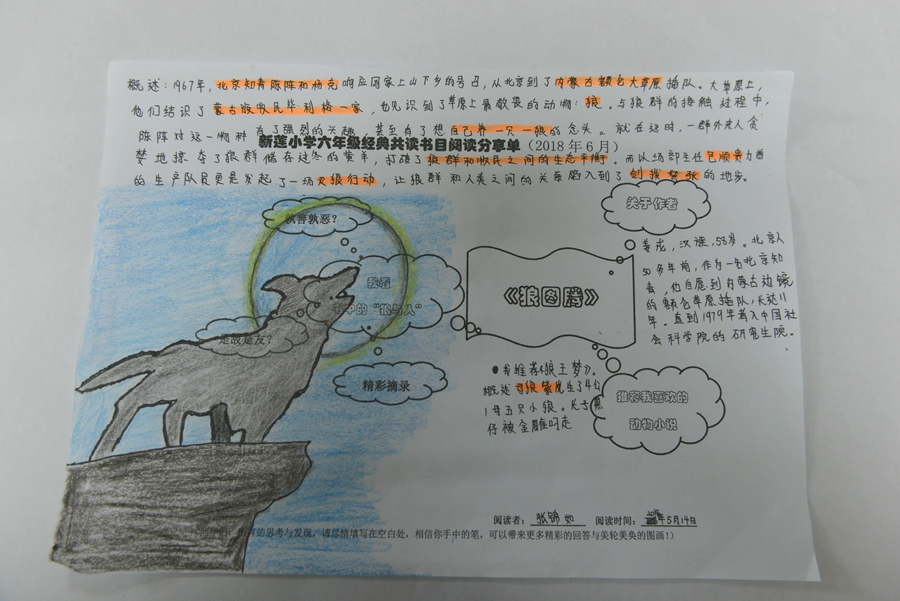 概述：1967年，北京知青陈阵和杨克响应国家上山下乡的号召，从北京到了内蒙古额仑大草原插队。大草原上，
他们结识了蒙古族牧民毕利格一家，也见识到了草原上最敬畏的动物：狼。与狼群的接触过程中，
陈阵对这一物种有了强烈的兴趣，甚至有了想自己养一只小狼的念头。就在这时，一群外来人贪
新莲小学六年级经典共读书目阅读分享单（2018年6月）
婪地掠夺了狼群储存过冬的黄羊，打破了狼群和牧民之间的生态平衡，而以场部主任包顺贵为首
的生产队员更是发起了一场灭狼行动，让狼群和人类之间的关系陷入到了剑拔弩张的地步。
孰善孰恶？
我看
书中的“狼与人”
是敌是友？
精彩摘录
《狼图腾》
关于作者
姜戎，汉族，58岁。北京人
50多年前，作为一名北京知
青，他自愿到内蒙古边境
的额仑草原插队，长达11
年。直到1979年考入中国社
会科学院的研究生院。
●我推荐《狼王梦》。
概述 母狼紫岚生了4公
1母五只小狼。长子黑
仔被金雕叼走
推荐我喜欢的
动物小说
阅读者：张锦如 阅读时间：年5月14日
的思考与发现，请尽情填写在空白处，相信你手中的笔，可以带来更多精彩的回答与美轮美奂的图画！）